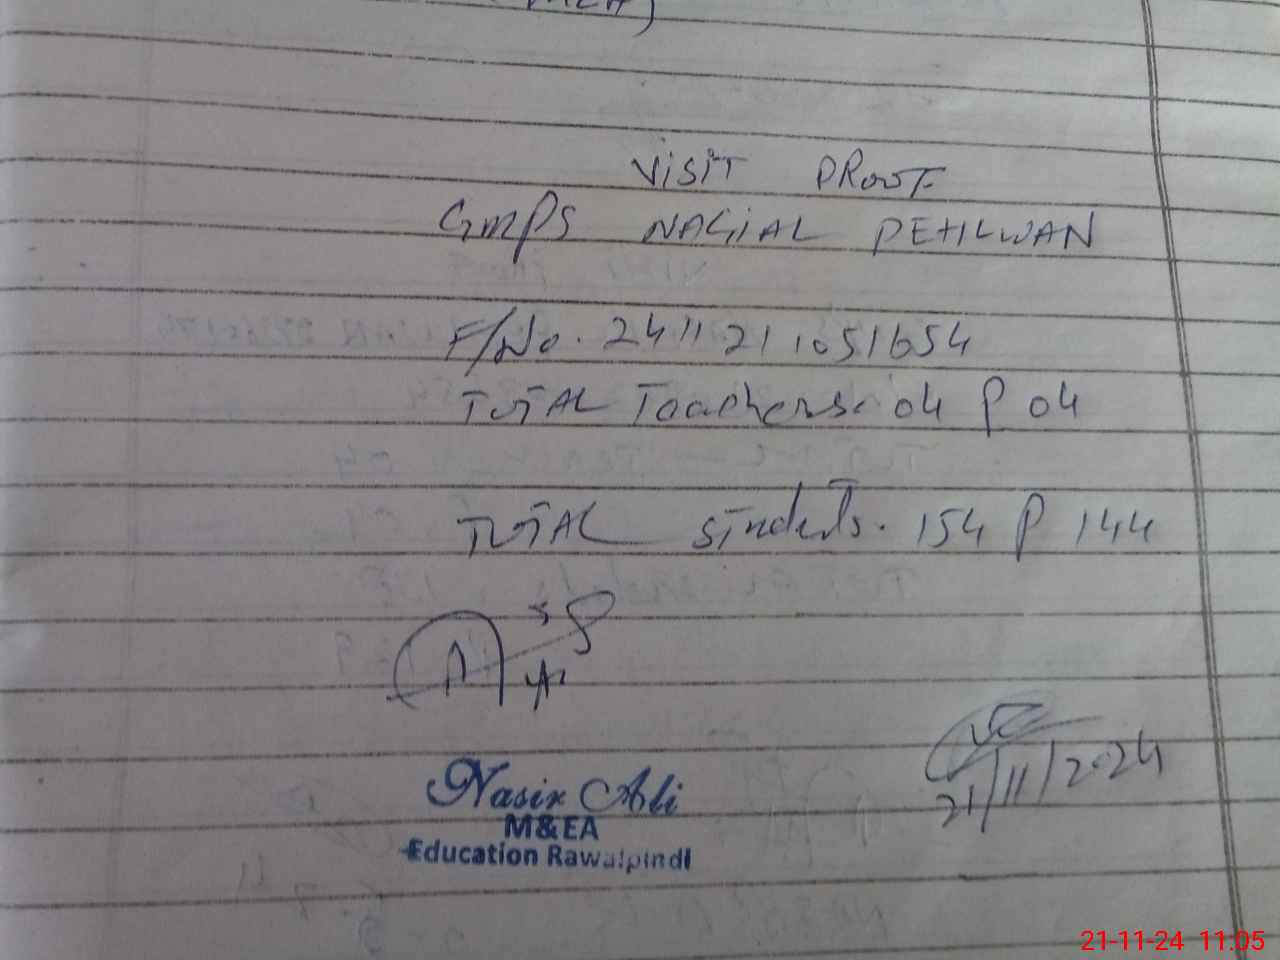 VISIT PROOF
GMPS NAGIAL PEHLWAN
F/No. 241121 1051654
TOTAL Teachers. 04 P 04
TOTAL Students. 154 P 144
Nasir Ali
M&EA
Education Rawalpindi
21/11/2024
21-11-24 11:05